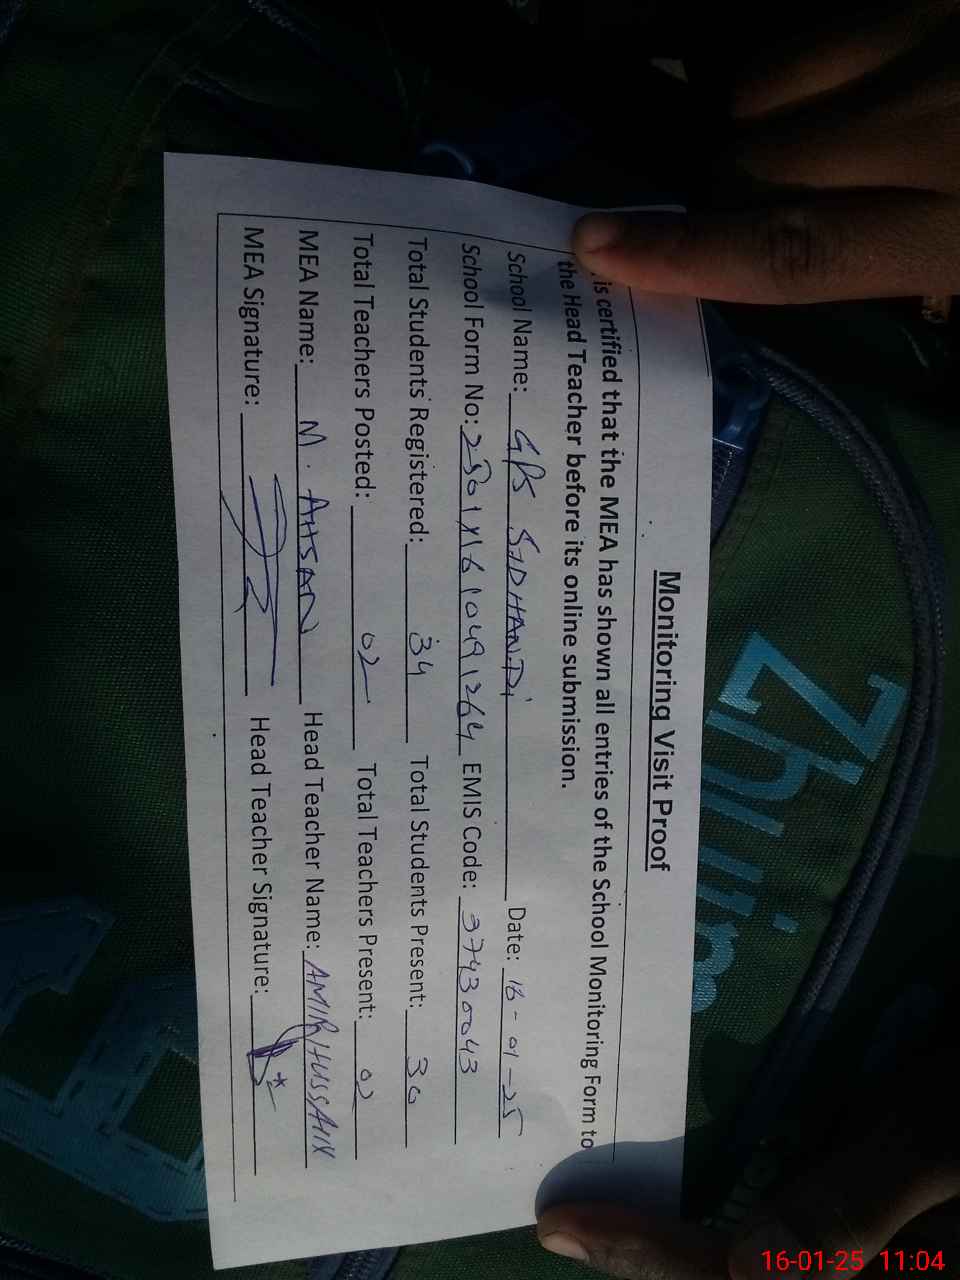 Monitoring Visit Proof
is certified that the MEA has shown all entries of the School Monitoring Form to
the Head Teacher before its online submission.
School Name: GPS SIDHANDI Date: 16-01-25
School Form No: EMIS Code: 37430043
Total Students Registered: 34 Total Students Present: 30
Total Teachers Posted: 02 Total Teachers Present: 02
MEA Name: M. AHSAN Head Teacher Name: AMIR HUSSAIN
MEA Signature: Head Teacher Signature:
16-01-25 11:04